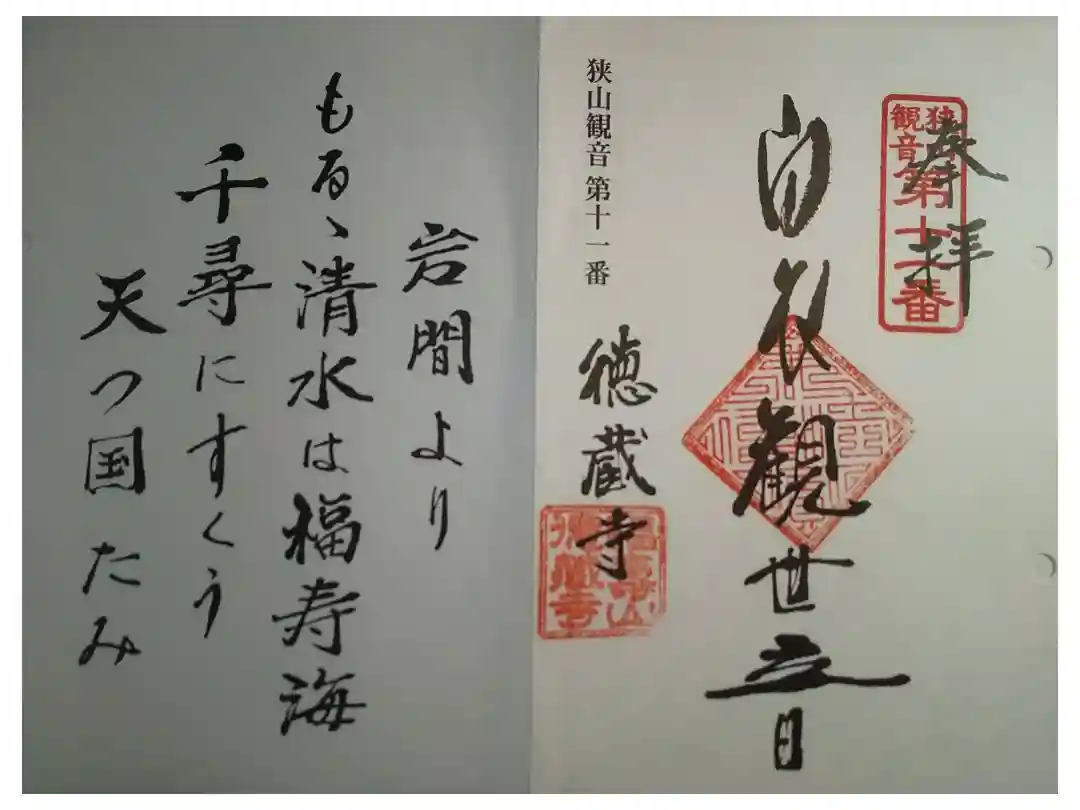 奉拝
狭山観音第十一番
白衣観世音
狭山観音 第十一番
徳蔵寺
岩間より
もるゝ清水は福寿海
千尋にすくう
天つ国たみ